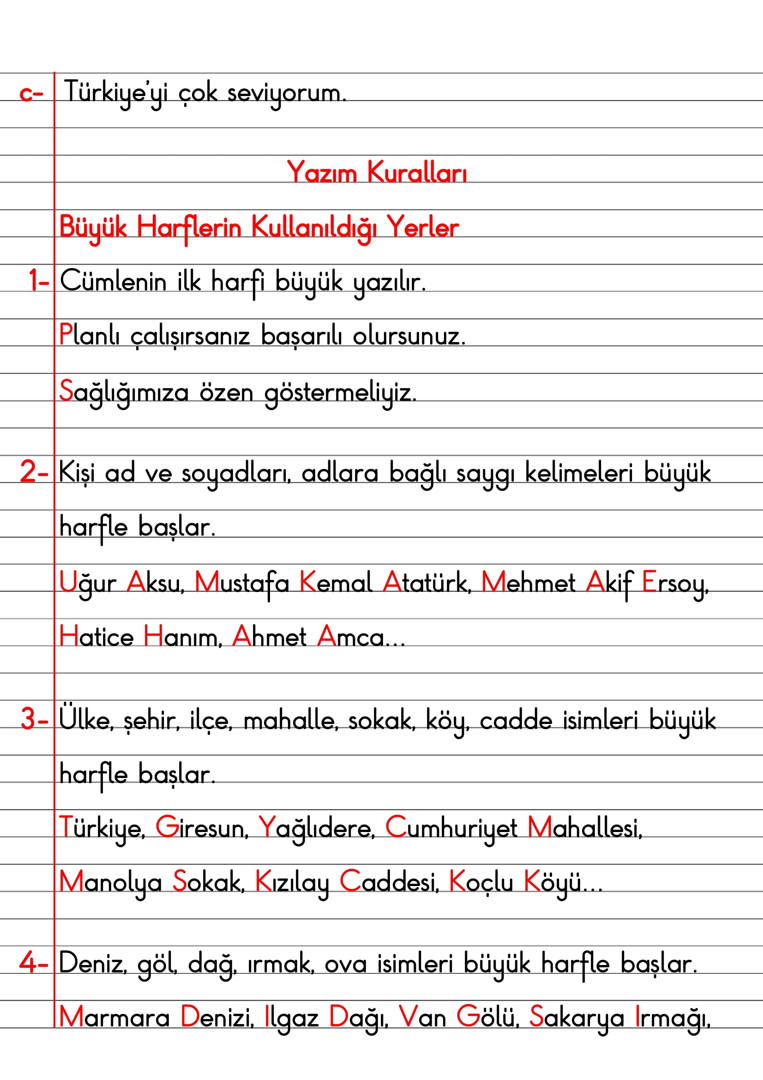 c- Türkiye'yi çok seviyorum.
Yazım Kuralları
Büyük Harflerin Kullanıldığı Yerler
1- Cümlenin ilk harfi büyük yazılır.
Planlı çalışırsanız başarılı olursunuz.
Sağlığımıza özen göstermeliyiz.
2- Kişi ad ve soyadları, adlara bağlı saygı kelimeleri büyük
harfle başlar.
Uğur Aksu, Mustafa Kemal Atatürk, Mehmet Akif Ersoy,
Hatice Hanım, Ahmet Amca...
3- Ülke, şehir, ilçe, mahalle, sokak, köy, cadde isimleri büyük
harfle başlar.
Türkiye, Giresun, Yağlıdere, Cumhuriyet Mahallesi,
Manolya Sokak, Kızılay Caddesi, Koçlu Köyü...
4- Deniz, göl, dağ, ırmak, ova isimleri büyük harfle başlar.
Marmara Denizi, Ilgaz Dağı, Van Gölü, Sakarya Irmağı,